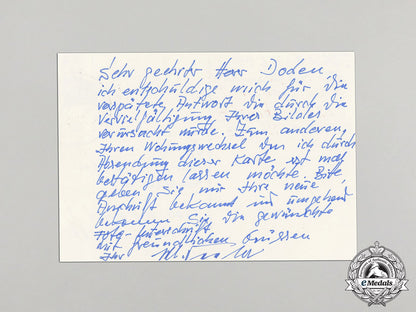 Sehr geehrter Herr Doden,
ich entschuldige mich für die
verspätete Antwort die durch die
Vervielfältigung Ihres Bildes
verursacht wurde. Zum anderen,
Ihren Wohnungswechsel den ich durch
Absendung dieser Karte erst mal
bestätigen lassen möchte. Bitte
geben Sie mir Ihre neue
Anschrift bekannt und umgehend
bekommen Sie die gewünschte
Foto-Unterschrift
Mit freundlichen Grüssen
Ihr
eMedals